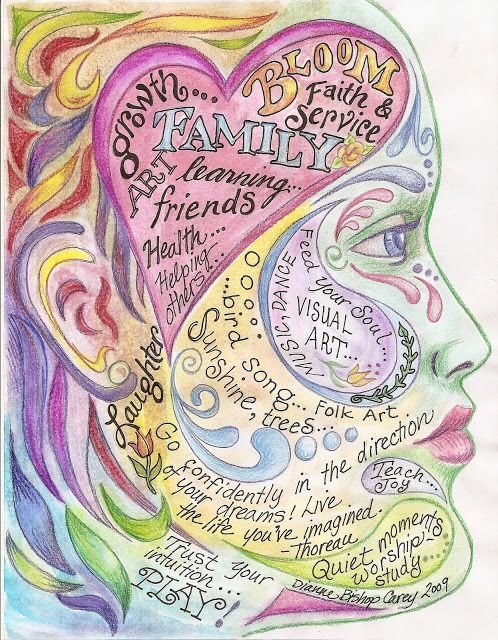 BLOOM
growth...
Faith &
Service
FAMILY
ART
learning...
friends
Health....
Helping
others!...
Feed Your Soul...
MUSIC, DANCE
VISUAL
ART...
...bird song...
Sunshine,
trees...
Folk Art
Laughter
Go confidently in the direction
of your dreams! Live
the life you've imagined.
-Thoreau
Teach...
Joy
Quiet moments
worship-
study
Trust Your
intuition...
PLAY!
Dianne Bishop Carey 2009